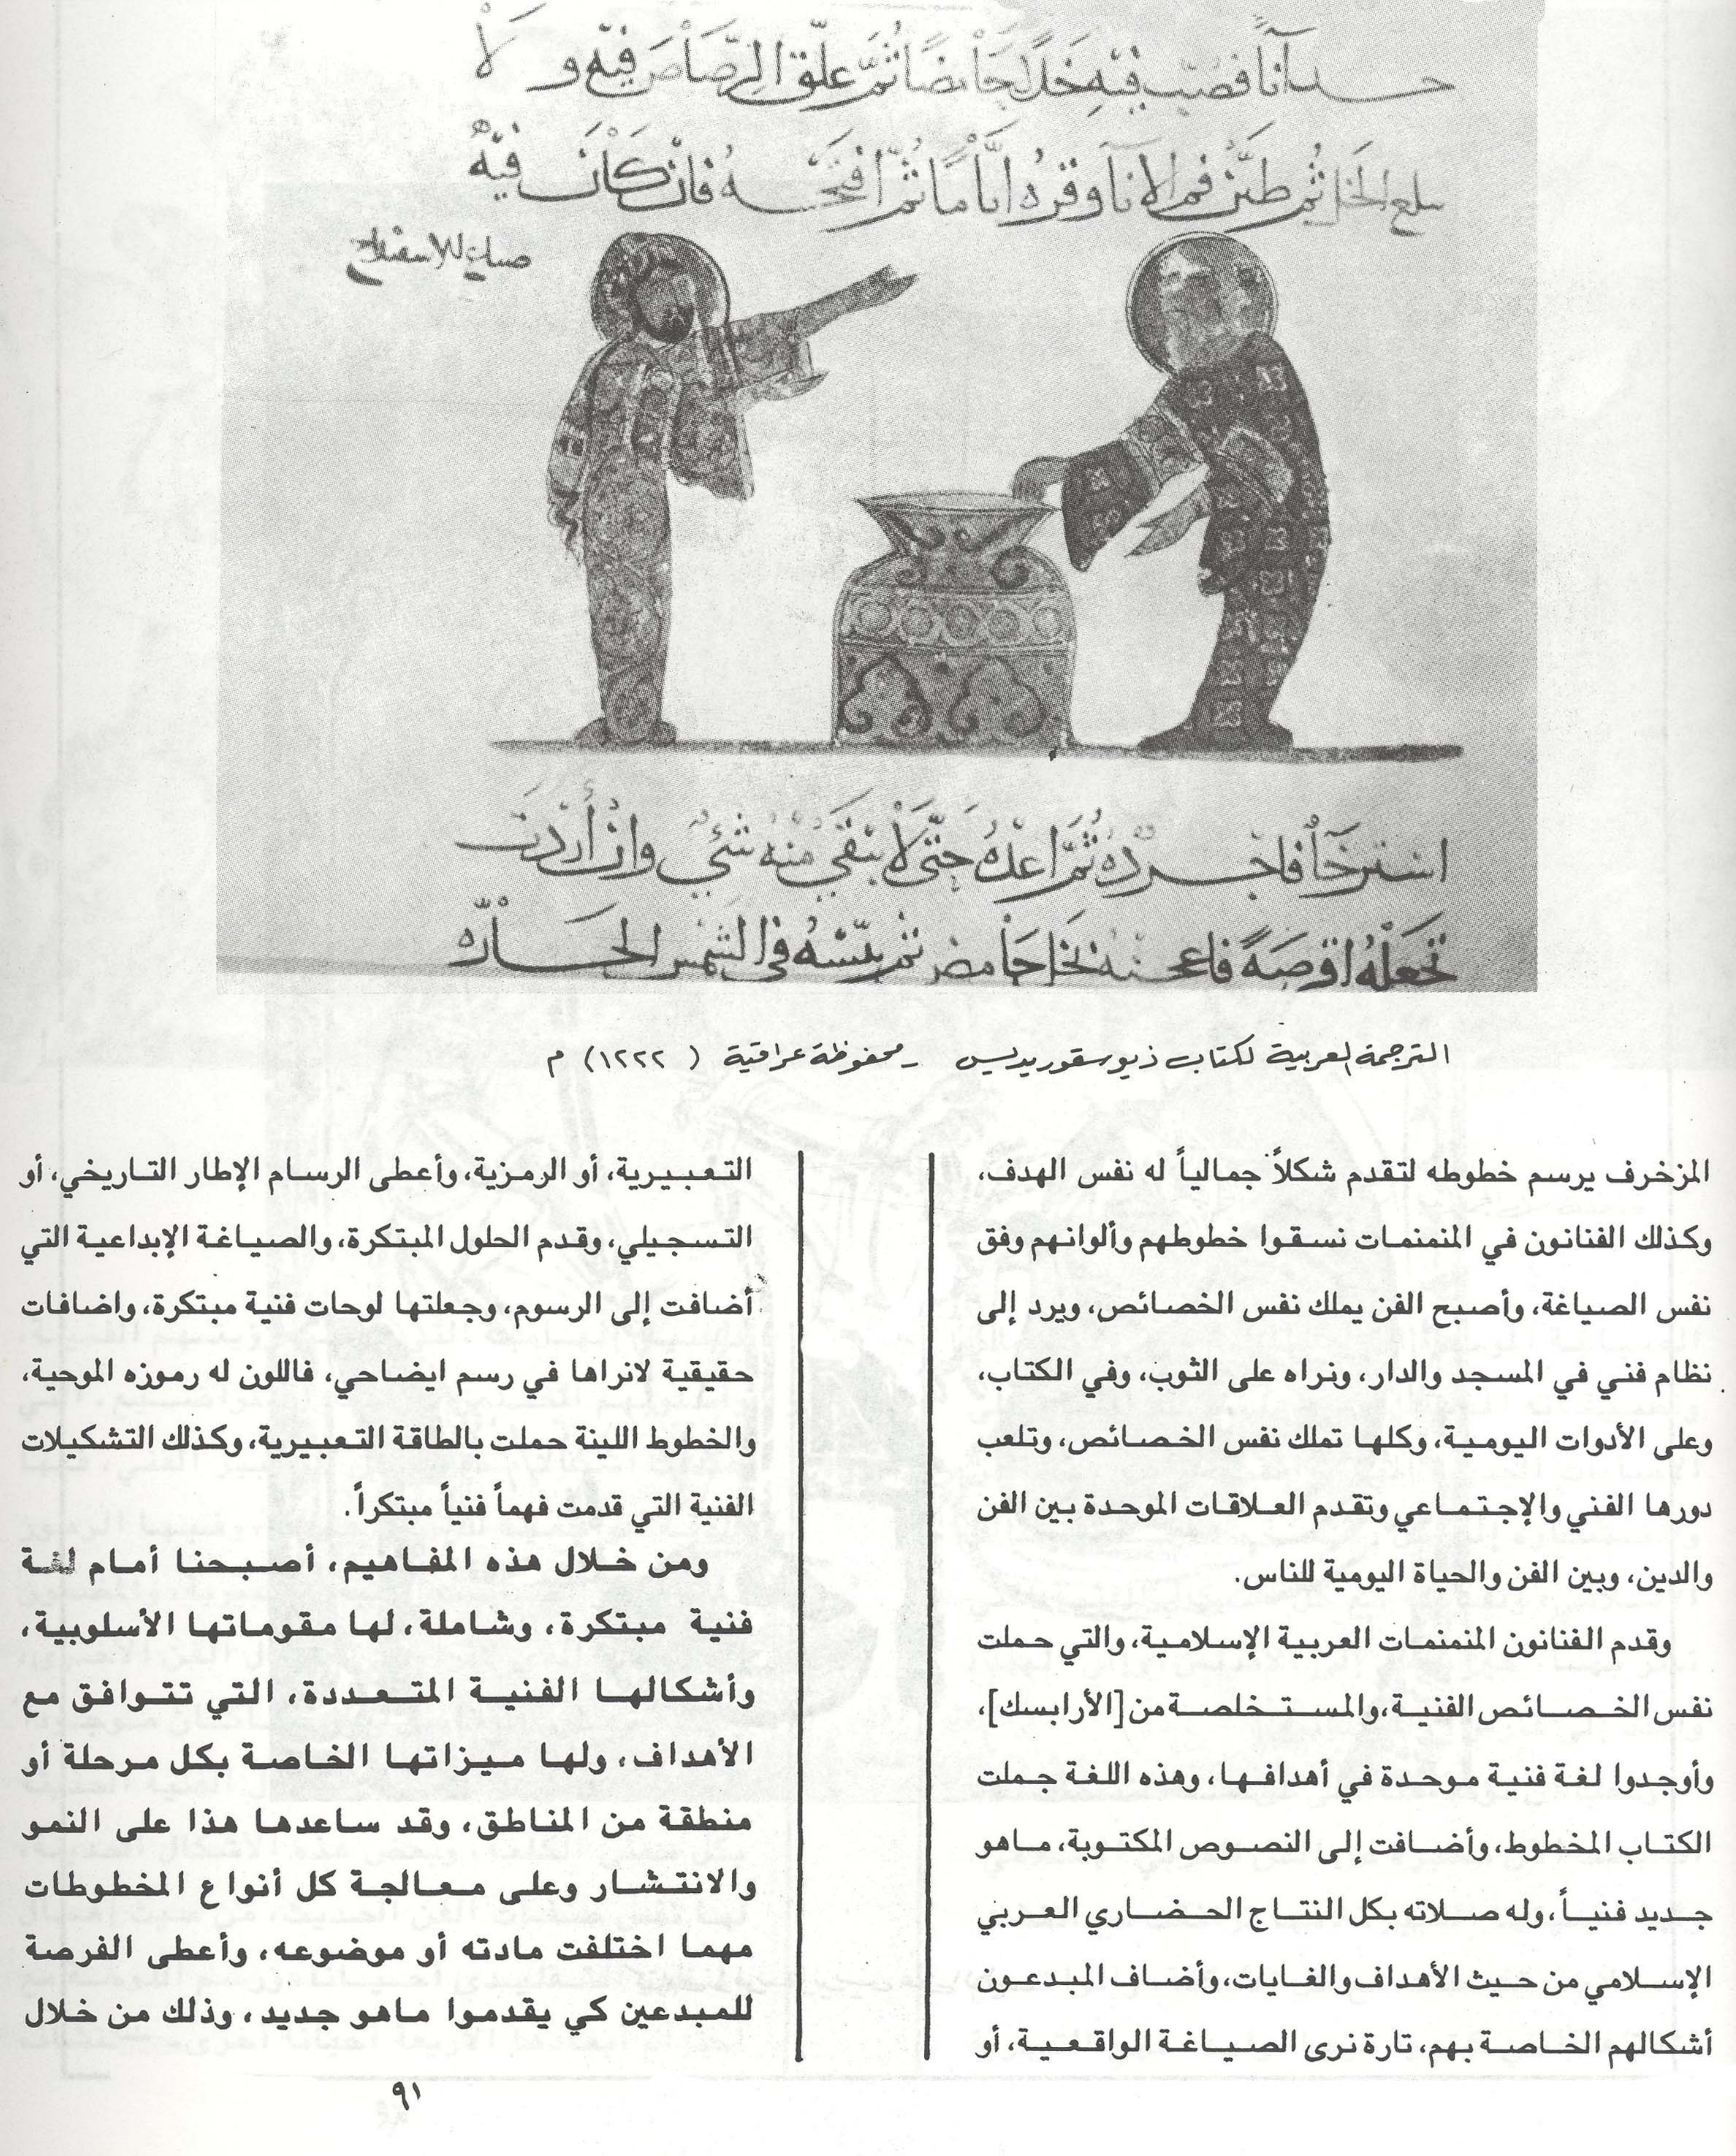 حد انآ فصبّ فيه خَلّا حَامضًا ثُمَّ علّق الرّصَاصَ فيه ولا
يبلع الخل ثُم طيّن فم الانآ وقره ايَّامًا ثُمّ افتحه فان كَانَ فيه
استرخآ فاجرده ثُمَّ اعده حَتّى لا يَبْقَى مِنْه شَيْءٌ وانْ أرَدْت
تجعَلهُ اقرصَةً فاعجنه بخل حَامض ثم يبّسهُ في الشمس الحَارّه
الترجمة العربية لكتاب ذيوسقوريديس - محفوظة عراقية ( ١٢٢٢) م
المزخرف يرسم خطوطه لتقدم شكلاً جمالياً له نفس الهدف،
وكذلك الفنانون في المنمنمات نسقوا خطوطهم وألوانهم وفق
نفس الصياغة، وأصبح الفن يملك نفس الخصائص، ويرد إلى
نظام فني في المسجد والدار، ونراه على الثوب، وفي الكتاب،
وعلى الأدوات اليومية، وكلها تملك نفس الخصائص، وتلعب
دورها الفني والإجتماعي وتقدم العلاقات الموحدة بين الفن
والدين، وبين الفن والحياة اليومية للناس.
وقدم الفنانون المنمنمات العربية الإسلامية، والتي حملت
نفس الخصائص الفنية، والمستخلصة من [الأرابسك]،
وأوجدوا لغة فنية موحدة في أهدافها، وهذه اللغة جملت
الكتاب المخطوط، وأضافت إلى النصوص المكتوبة، ماهو
جديد فنياً، وله صلاته بكل النتاج الحضاري العربي
الإسلامي من حيث الأهداف والغايات، وأضاف المبدعون
أشكالهم الخاصة بهم، تارة نرى الصياغة الواقعية، أو
التعبيرية، أو الرمزية، وأعطى الرسام الإطار التاريخي، أو
التسجيلي، وقدم الحلول المبتكرة، والصياغة الإبداعية التي
أضافت إلى الرسوم، وجعلتها لوحات فنية مبتكرة، واضافات
حقيقية لانراها في رسم ايضاحي، فاللون له رموزه الموحية،
والخطوط اللينة حملت بالطاقة التعبيرية، وكذلك التشكيلات
الفنية التي قدمت فهماً فنياً مبتكراً.
ومن خلال هذه المفاهيم، أصبحنا أمام لغة
فنية مبتكرة، وشاملة، لها مقوماتها الأسلوبية،
وأشكالها الفنية المتعددة، التي تتوافق مع
الأهداف، ولها ميزاتها الخاصة بكل مرحلة أو
منطقة من المناطق، وقد ساعدها هذا على النمو
والانتشار وعلى معالجة كل أنواع المخطوطات
مهما اختلفت مادته أو موضوعه، وأعطى الفرصة
للمبدعين كي يقدموا ماهو جديد، وذلك من خلال
٩١